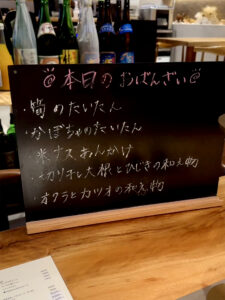 本日のおばんざい
・筍のたいたん
・かぼちゃのたいたん
・米ナスあんかけ
・切り干し大根とひじきの和え物
・オクラとカツオの和え物